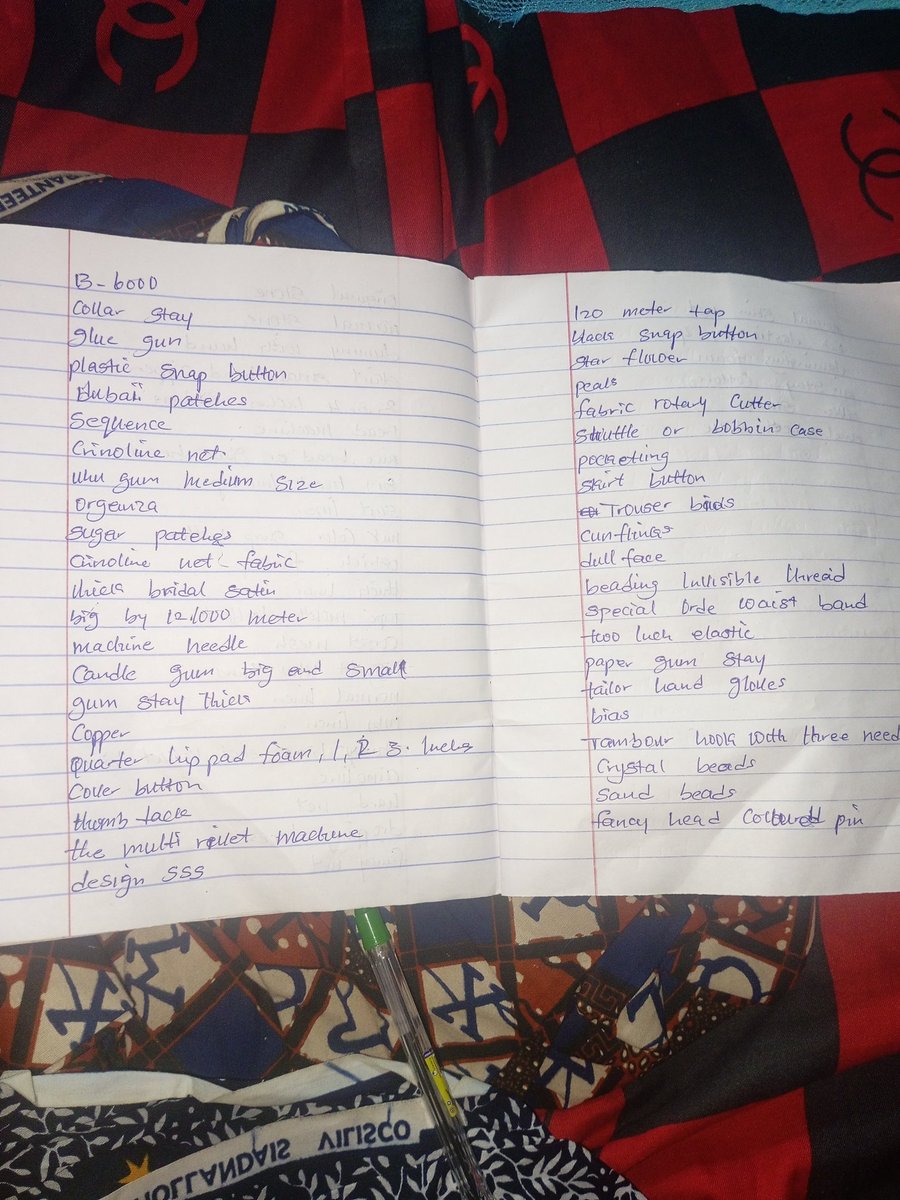 B-6000
Collar stay
glue gun
plastic snap button
Dubaii patches
Sequence
Crinoline net
uhu gum medium size
Orgenza
Sugar patches
Crinoline net fabric
thick bridal satin
big by 12,1000 meter
machine needle
Candle gum big and small
gum stay thick
Copper
Quarter hip pad foam, 1, 2 3. Inches
Cover button
thumb tack
the multi rivet machine
design sss
120 meter tap
black snap button
star flower
peals
fabric rotary cutter
Shuttle or bobbin case
pocketing
skirt button
Trouser
cunflings
dull face
beading Invisible thread
special Orde waist band
two Inch elastic
paper gum stay
tailor hand gloves
bias
Tambour hook with three need
Crystal beads
Sand beads
fancy head Coloured pin
RANTEE
HOLLANDAIS VILISCO